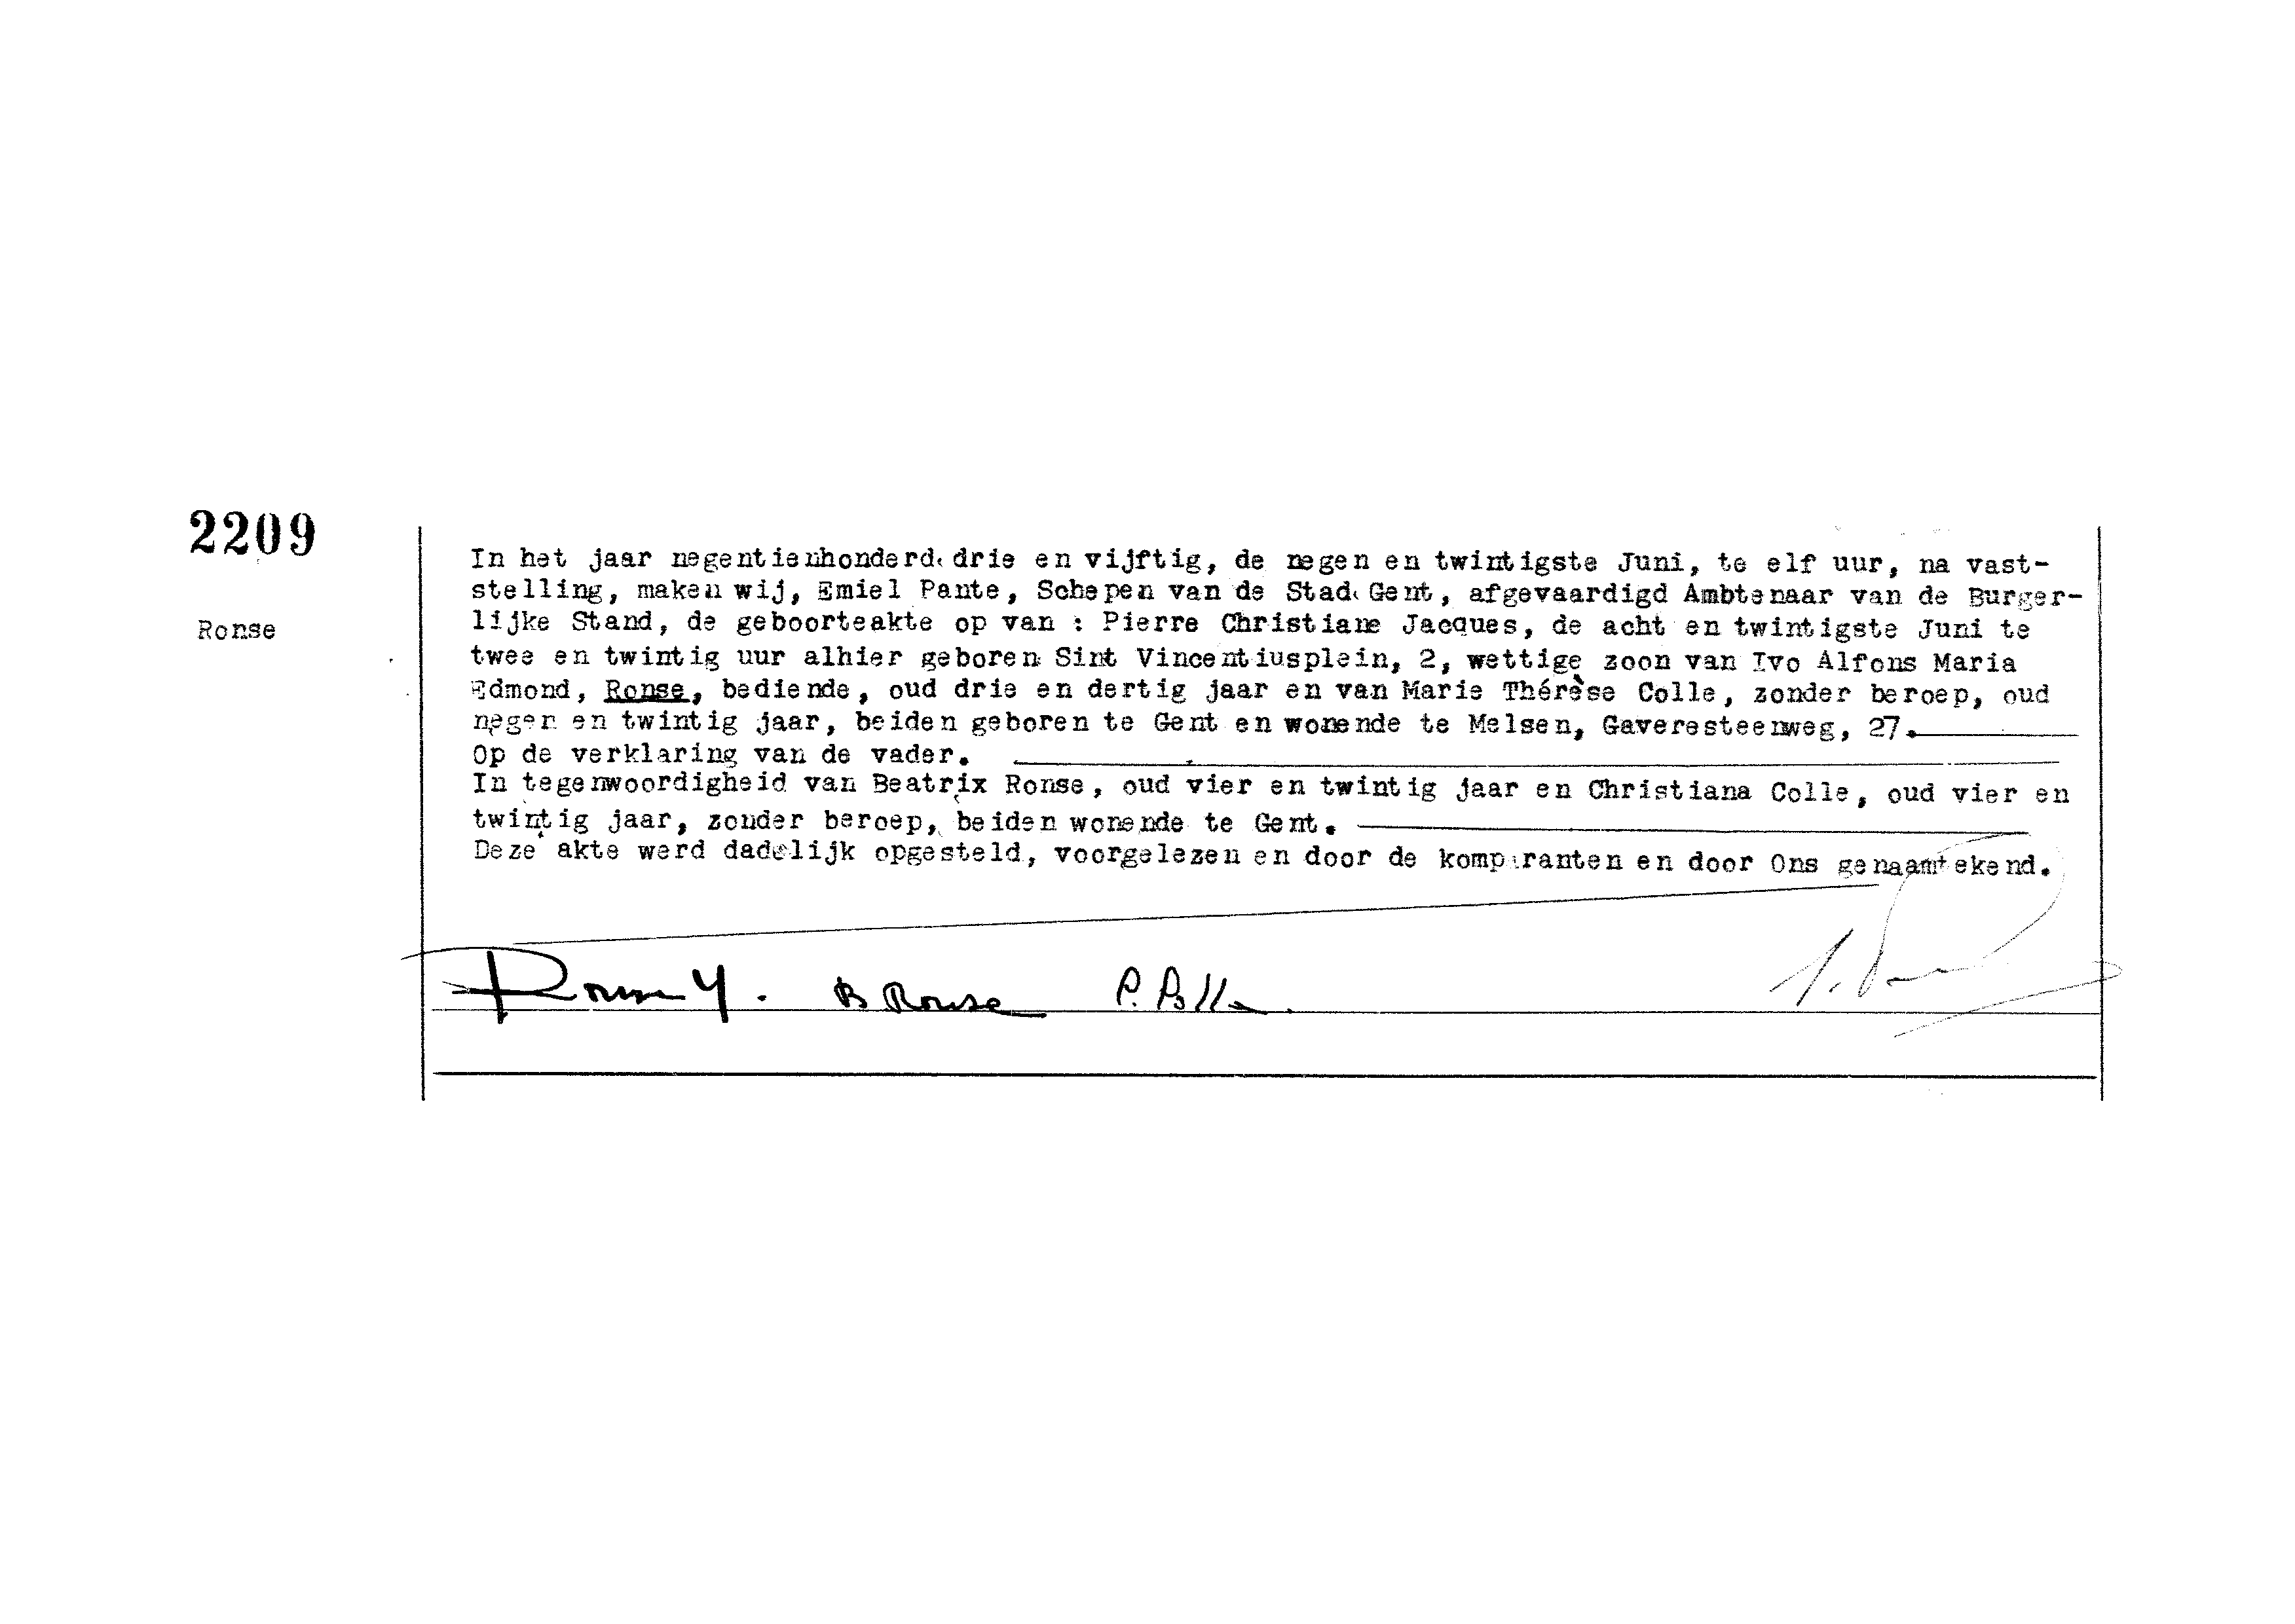 2209
Ronse
In het jaar negentienhonderd drie en vijftig, de negen en twintigste Juni, te elf uur, na vast-
stelling, maken wij, Emiel Pante, Schepen van de Stad Gent, afgevaardigd Ambtenaar van de Burger-
lijke Stand, de geboorteakte op van : Pierre Christiane Jacques, de acht en twintigste Juni te
twee en twintig uur alhier geboren Sint Vincentiusplein, 2, wettige zoon van Ivo Alfons Maria
Edmond, Ronse, bediende, oud drie en dertig jaar en van Marie Thérèse Colle, zonder beroep, oud
negen en twintig jaar, beiden geboren te Gent en wonende te Melsen, Gaveresteenweg, 27.
Op de verklaring van de vader.
In tegenwoordigheid van Beatrix Ronse, oud vier en twintig jaar en Christiana Colle, oud vier en
twintig jaar, zonder beroep, beiden wonende te Gent.
Deze akte werd dadelijk opgesteld, voorgelezen en door de komparanten en door Ons genaamtekend.
Ronse Y. B Ronse